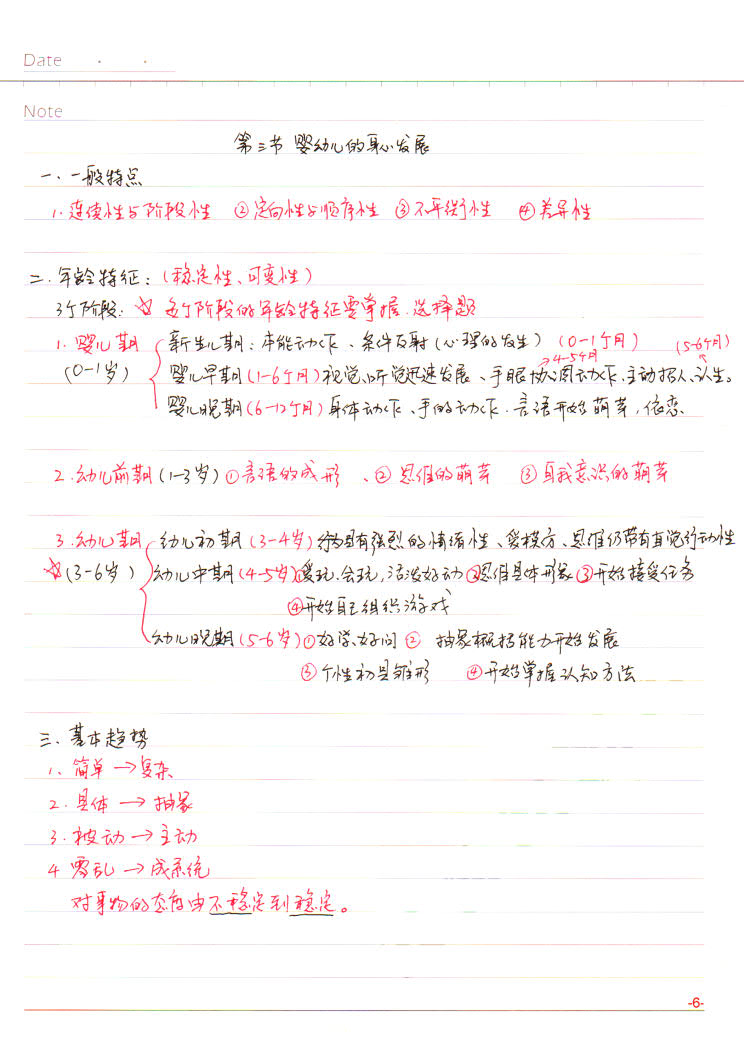 Date
Note
第三节 婴幼儿的身心发展
一.一般特点
1.连续性与阶段性 ②定向性与顺序性 ③不平衡性 ④差异性
二.年龄特征:(稳定性、可变性)
3个阶段:☆ 各个阶段的年龄特征要掌握.选择题
1.婴儿期 新生儿期:本能动作、条件反射(心理的发生)(0-1个月) (5-6个月)
4-5个月
(0-1岁) 婴儿早期(1-6个月)视觉、听觉迅速发展、手眼协调动作、主动招人、认生。
婴儿晚期(6-12个月)身体动作、手的动作.言语开始萌芽,依恋.
2.幼儿前期(1-3岁)①言语的成形、②思维的萌芽 ③自我意识的萌芽
3.幼儿期 幼儿初期(3-4岁)行为具有强烈的情绪性、爱模仿、思维仍带有直觉行动性
☆(3-6岁) 幼儿中期(4-5岁)①爱玩、会玩,活泼好动②思维具体形象③开始接受任务
④开始自己组织游戏
幼儿晚期(5-6岁)①好学、好问② 抽象概括能力开始发展
③个性初具雏形 ④开始掌握认知方法
三、基本趋势
1、简单→复杂
2.具体→抽象
3.被动→主动
4 零乱→成系统
对事物的态度由不稳定到稳定。
-6-